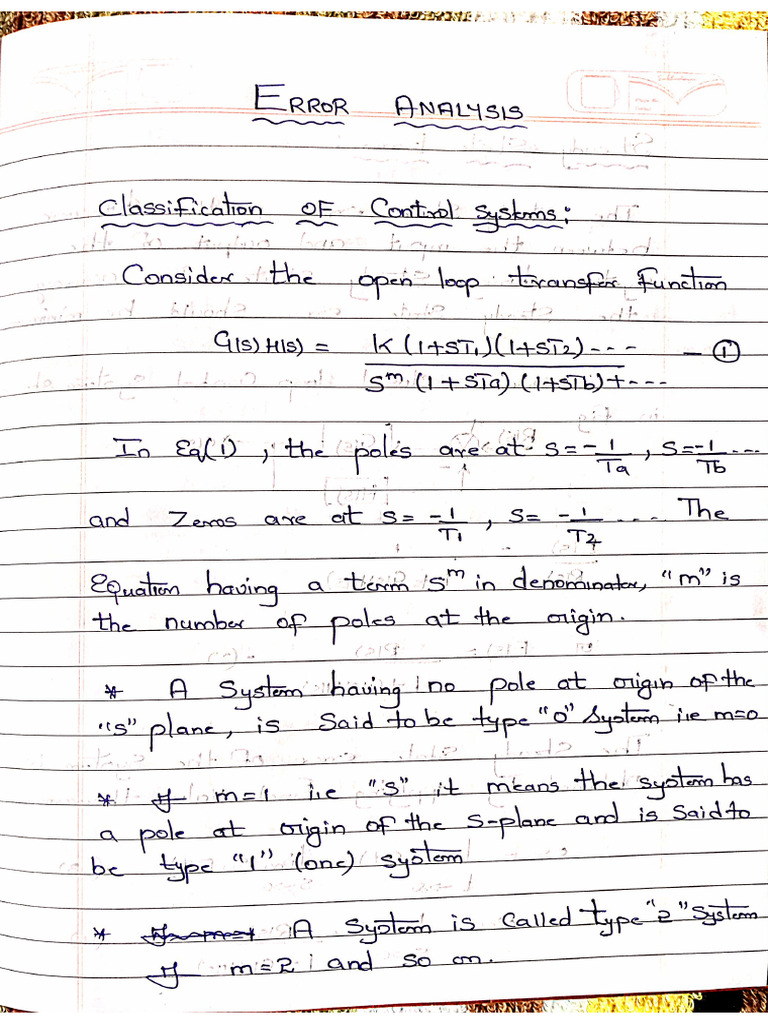 ERROR ANALYSIS
Classification OF Control Systems:
Consider the open loop transfer Function
G(s)H(s) = K(1+ST1)(1+ST2)--- — ①
S^m (1+STa) (1+STb)+---
In Eq(1), the poles are at S=-1/Ta, S=-1/Tb ....
and Zeros are at S= -1/T1, S= -1/T2 .... The
Equation having a term S^m in denominator, "m" is
the number of poles at the origin.
* A System having no pole at origin of the
"S" plane, is Said to be type "0" System i.e m=0
* If m=1 i.e "S" it means the system has
a pole at origin of the S-plane and is Said to
be type "1" (one) system
* A System is called type "2" System
If m=2 and so on.